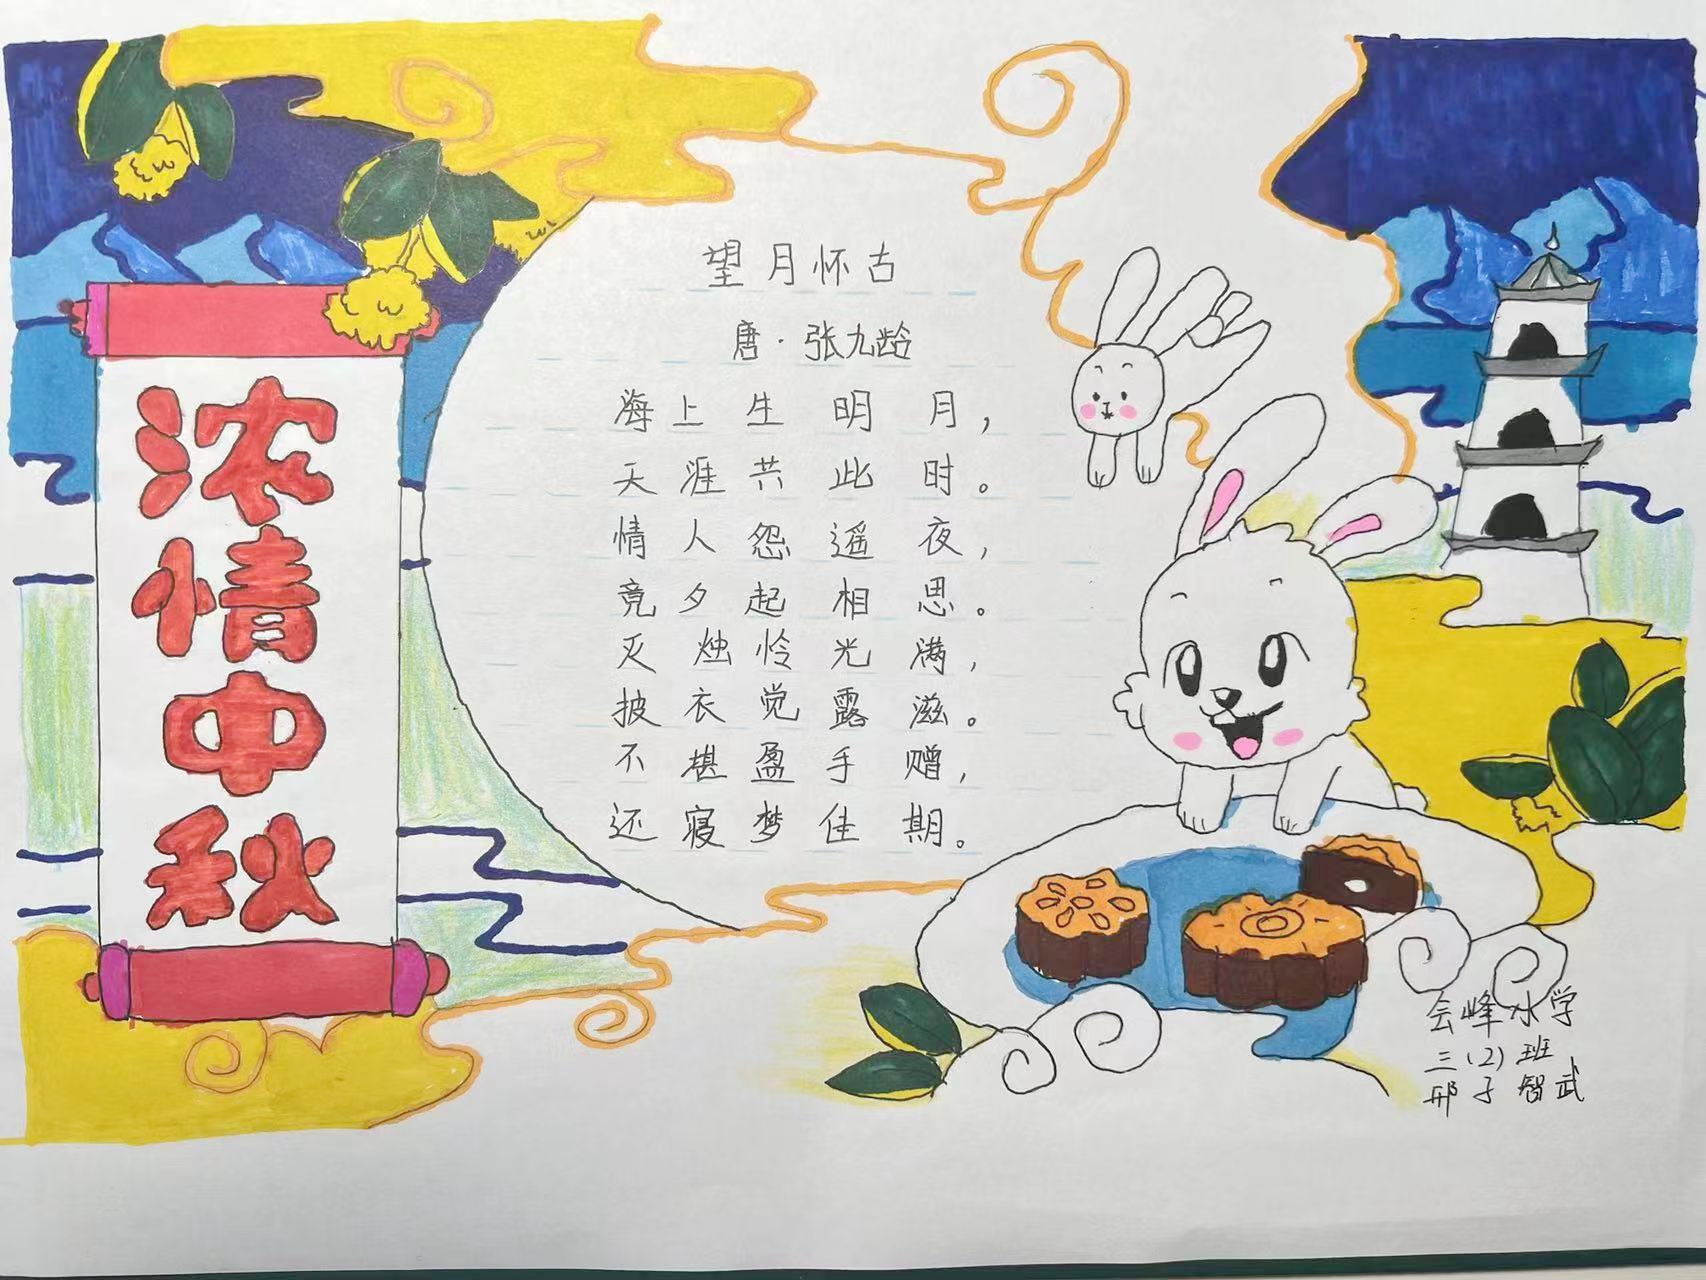 浓情中秋
望月怀古
唐·张九龄
海上生明月，
天涯共此时。
情人怨遥夜，
竟夕起相思。
灭烛怜光满，
披衣觉露滋。
不堪盈手赠，
还寝梦佳期。
会峰水学
三(2)班
邢子智武